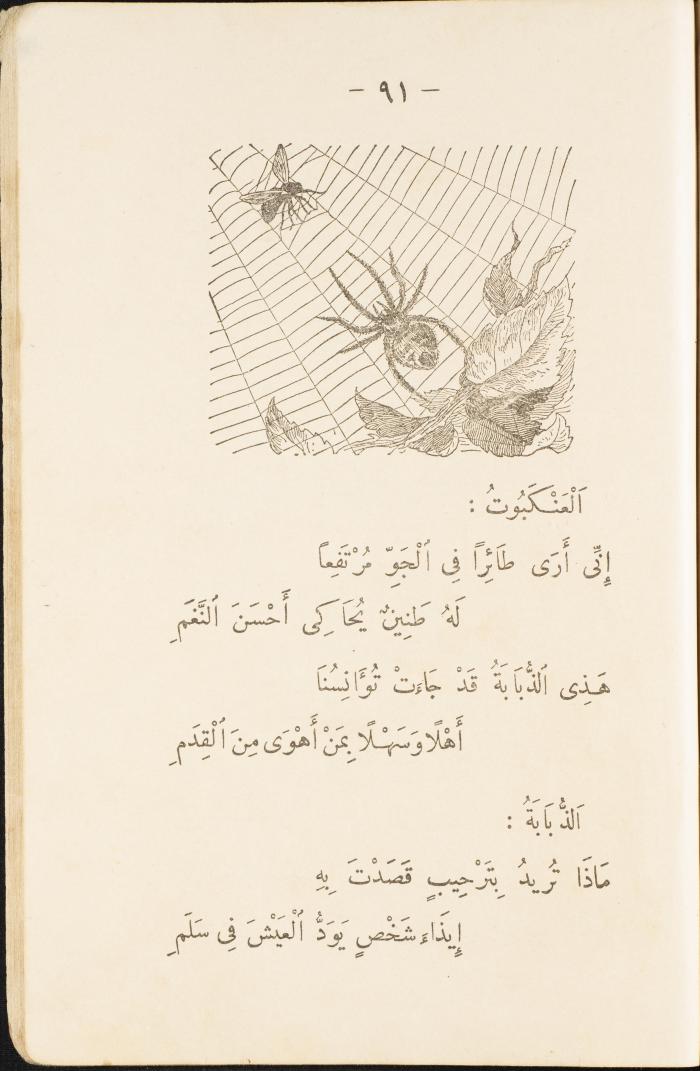 – ٩١ –
اَلْعَنْكَبُوتُ :
إِنِّى أَرَى طَائِرًا فِى ٱلْجَوِّ مُرْتَفِعاً
لَهُ طَنِينٌ يُحَاكِى أَحْسَنَ ٱلنَّغَمِ
هَذِى ٱلذُّبَابَةُ قَدْ جَاءَتْ تُوَانِسُنَا
أَهْلًا وَسَهْلًا بِمَنْ أَهْوَى مِنَ ٱلْقِدَمِ
اَلذُّبَابَةُ :
مَاذَا تُرِيدُ بِتَرْحِيبٍ قَصَدْتَ بِهِ
إِيذَاءَ شَخْصٍ يَوَدُّ ٱلْعَيْشَ فِى سَلَمِ